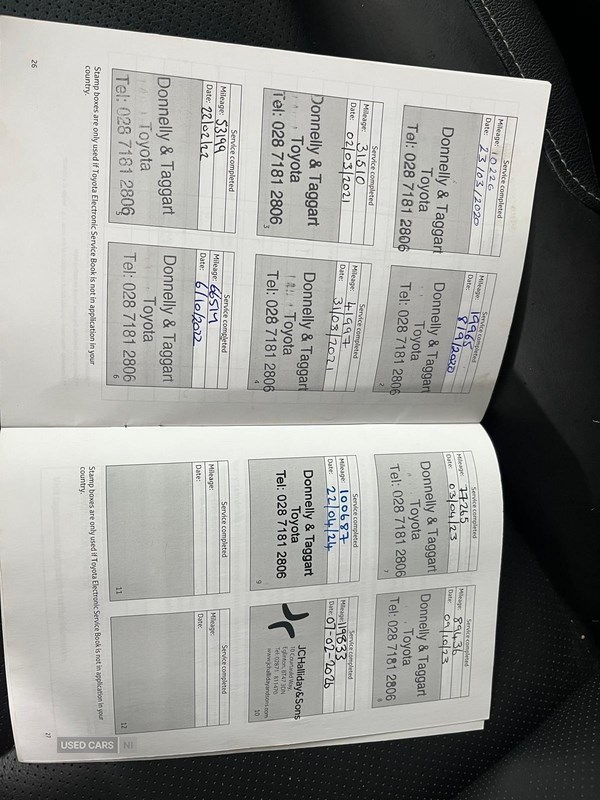 Service completed
Mileage: 10226
Date: 23/03/2020
Donnelly & Taggart
Toyota
Tel: 028 7181 2806
Service completed
Mileage: 19965
Date: 8/9/2020
Donnelly & Taggart
Toyota
Tel: 028 7181 2806
2
Service completed
Mileage: 31510
Date: 02/03/2021
Donnelly & Taggart
Toyota
Tel: 028 7181 2806
3
Service completed
Mileage: 41997
Date: 31/08/2021
Donnelly & Taggart
Toyota
Tel: 028 7181 2806
4
Service completed
Mileage: 53199
Date: 22/02/22
Donnelly & Taggart
Toyota
Tel: 028 7181 2806
5
Service completed
Mileage: 66514
Date: 6/10/2022
Donnelly & Taggart
Toyota
Tel: 028 7181 2806
6
Stamp boxes are only used if Toyota Electronic Service Book is not in application in your
country.
26
Service completed
Mileage: 77265
Date: 03/04/23
Donnelly & Taggart
Toyota
Tel: 028 7181 2806
7
Service completed
Mileage: 89436
Date: 09/10/23
Donnelly & Taggart
Toyota
Tel: 028 7181 2806
8
Service completed
Mileage: 100687
Date: 22/04/24
Donnelly & Taggart
Toyota
Tel: 028 7181 2806
9
Service completed
Mileage: 119833
Date: 07-02-2026
JCHalliday&Sons
Eglinton, BT47 3ZN
Tel: 02871 811470
www.jchallidayandsons.com
10
Service completed
Mileage:
Date:
11
Service completed
Mileage:
Date:
12
Stamp boxes are only used if Toyota Electronic Service Book is not in application in your
country.
27
USED CARS NI